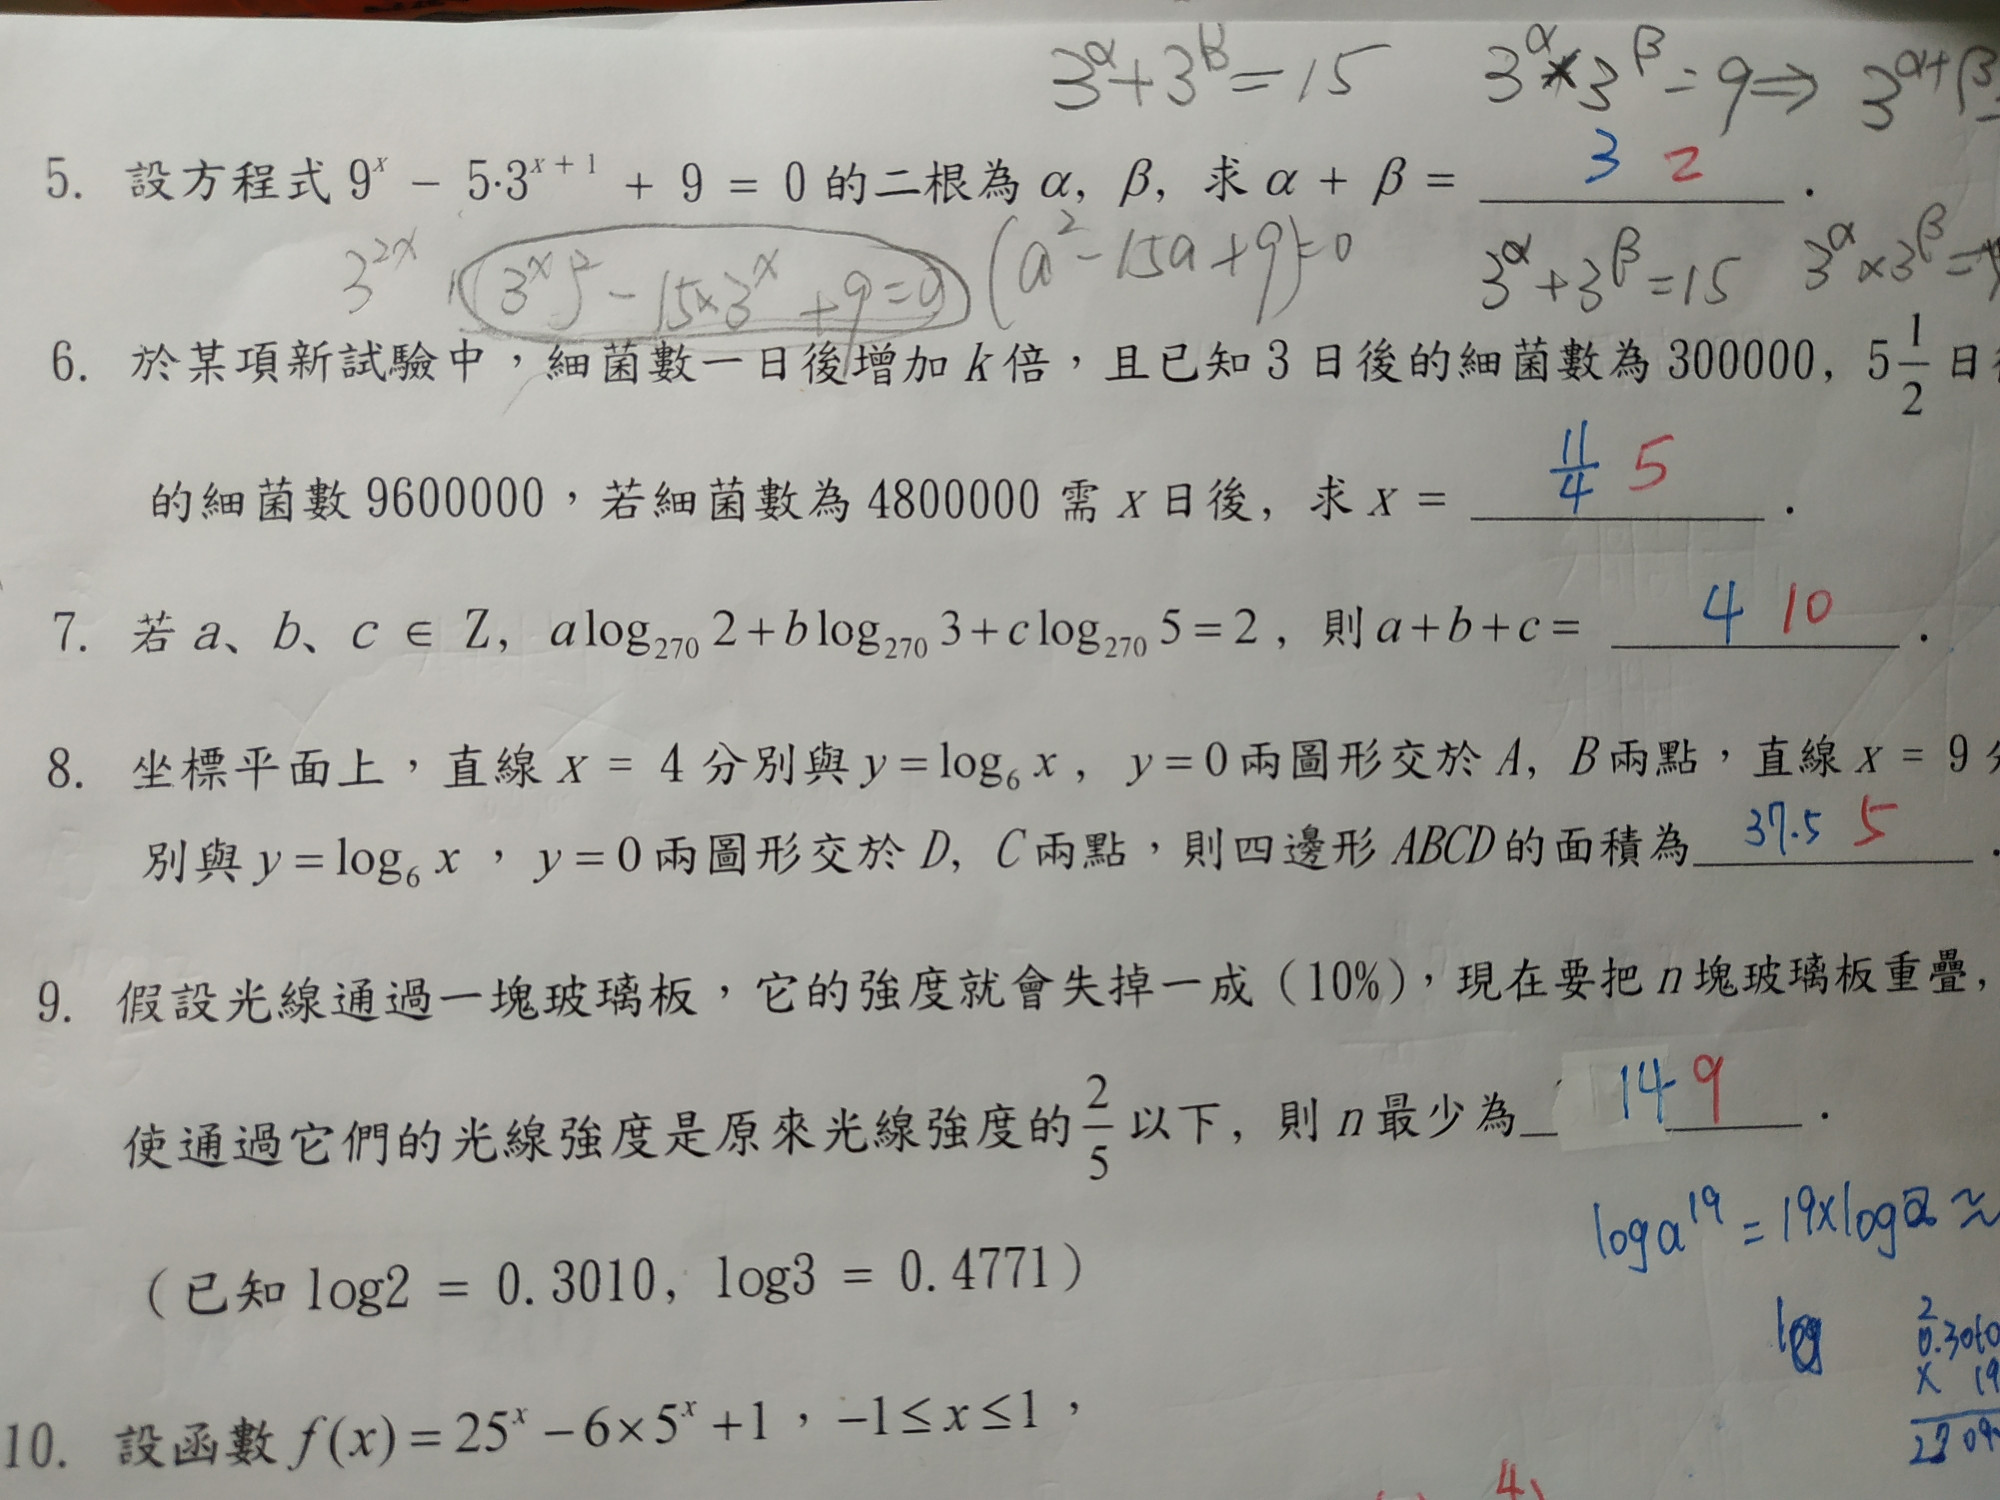 3^α + 3^β = 15 3^α × 3^β = 9 ⇒ 3^{α+β} =
5. 設方程式 9^x − 5·3^{x+1} + 9 = 0 的二根為 α, β, 求 α + β = 3 2 .
3^{2x} (3^x)^2 − 15×3^x + 9 = 0 (a^2 − 15a + 9) = 0 3^α + 3^β = 15 3^α × 3^β =
6. 於某項新試驗中，細菌數一日後增加 k 倍，且已知 3 日後的細菌數為 300000, 5 1/2 日
的細菌數 9600000，若細菌數為 4800000 需 x 日後, 求 x = 11/4 5 .
7. 若 a、b、c ∈ Z, a log_{270} 2 + b log_{270} 3 + c log_{270} 5 = 2 , 則 a + b + c = 4 10 .
8. 坐標平面上，直線 x = 4 分別與 y = log_6 x , y = 0 兩圖形交於 A, B 兩點，直線 x = 9
別與 y = log_6 x ， y = 0 兩圖形交於 D, C 兩點，則四邊形 ABCD 的面積為 37.5 5 .
9. 假設光線通過一塊玻璃板，它的強度就會失掉一成 (10%)，現在要把 n 塊玻璃板重疊,
使通過它們的光線強度是原來光線強度的 2/5 以下, 則 n 最少為 14 9 .
log a^{19} = 19×log a ≈
(已知 log2 = 0.3010, log3 = 0.4771)
log
0.3010
× 19
10. 設函數 f(x) = 25^x − 6×5^x + 1，−1 ≤ x ≤ 1，